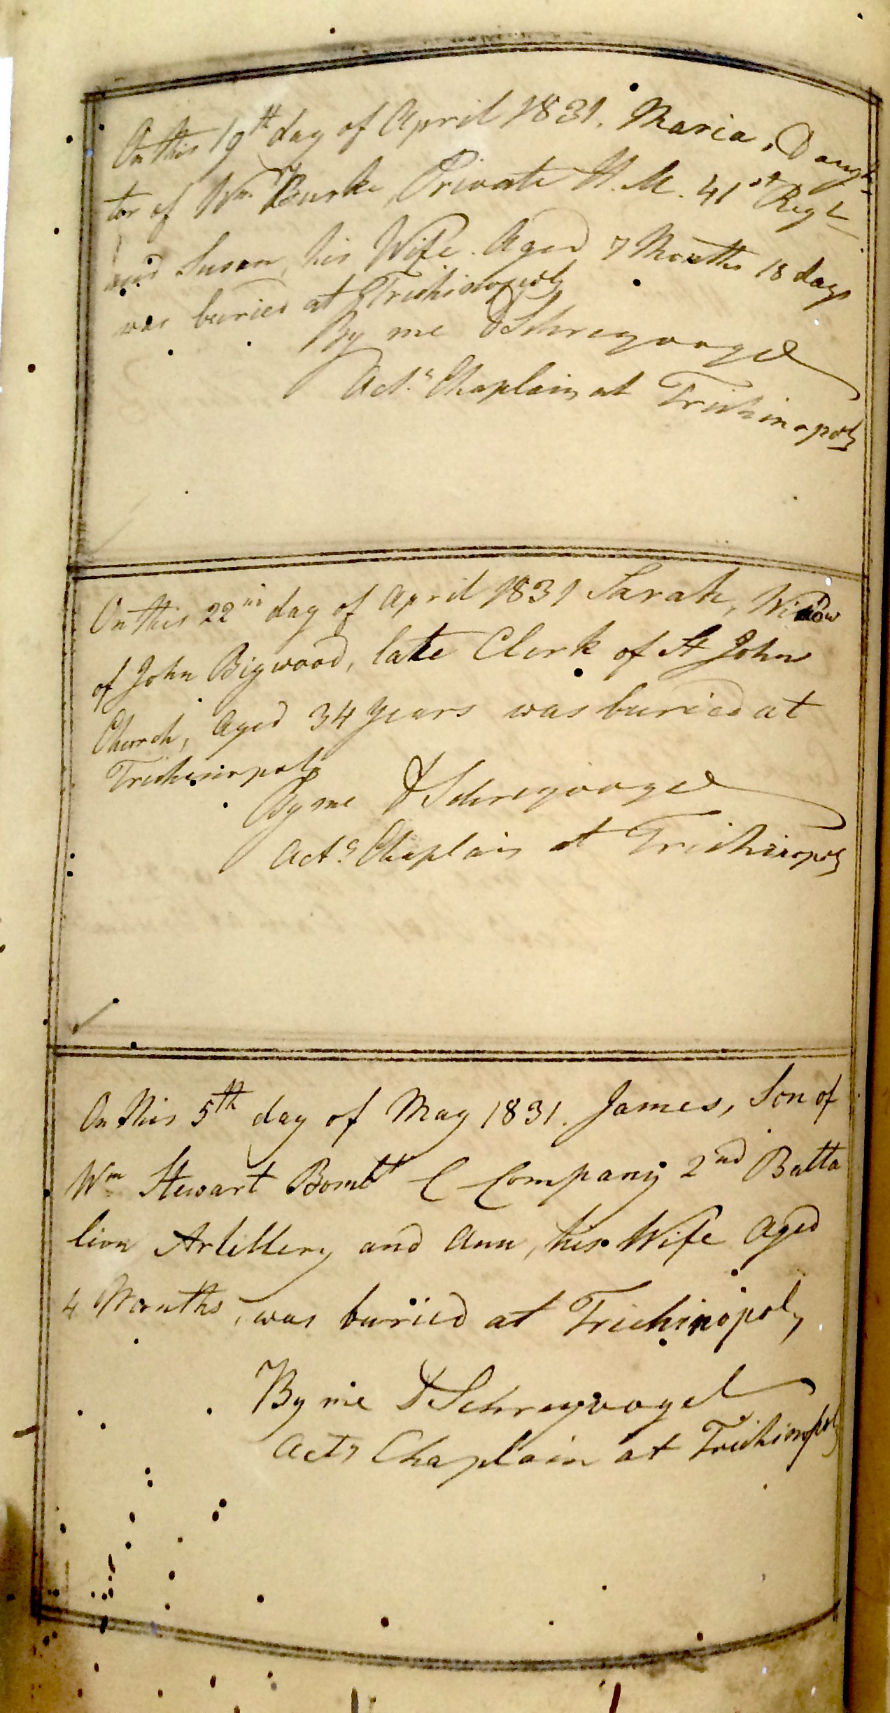 On this 19th day of April 1831. Maria, Daugh
ter of Wm Burke, Private H. M. 41st Regt
and Susan, his Wife. Aged 7 Months 18 days
was buried at Trichinopoly
By me D Schreyvogel
Actg Chaplain at Trichinopoly
On this 22nd day of April 1831 Sarah, Widow
of John Bigwood, late Clerk of St Johns
Church, Aged 34 Years was buried at
Trichinopoly
By me D Schreyvogel
Actg Chaplain at Trichinopoly
On this 5th day of May 1831. James, Son of
Wm Stewart Bombr C Company 2nd Batta
lion Artillery and Ann, his Wife Aged
4 Months, was buried at Trichinopoly
By me D Schreyvogel
Actg Chaplain at Trichinopoly